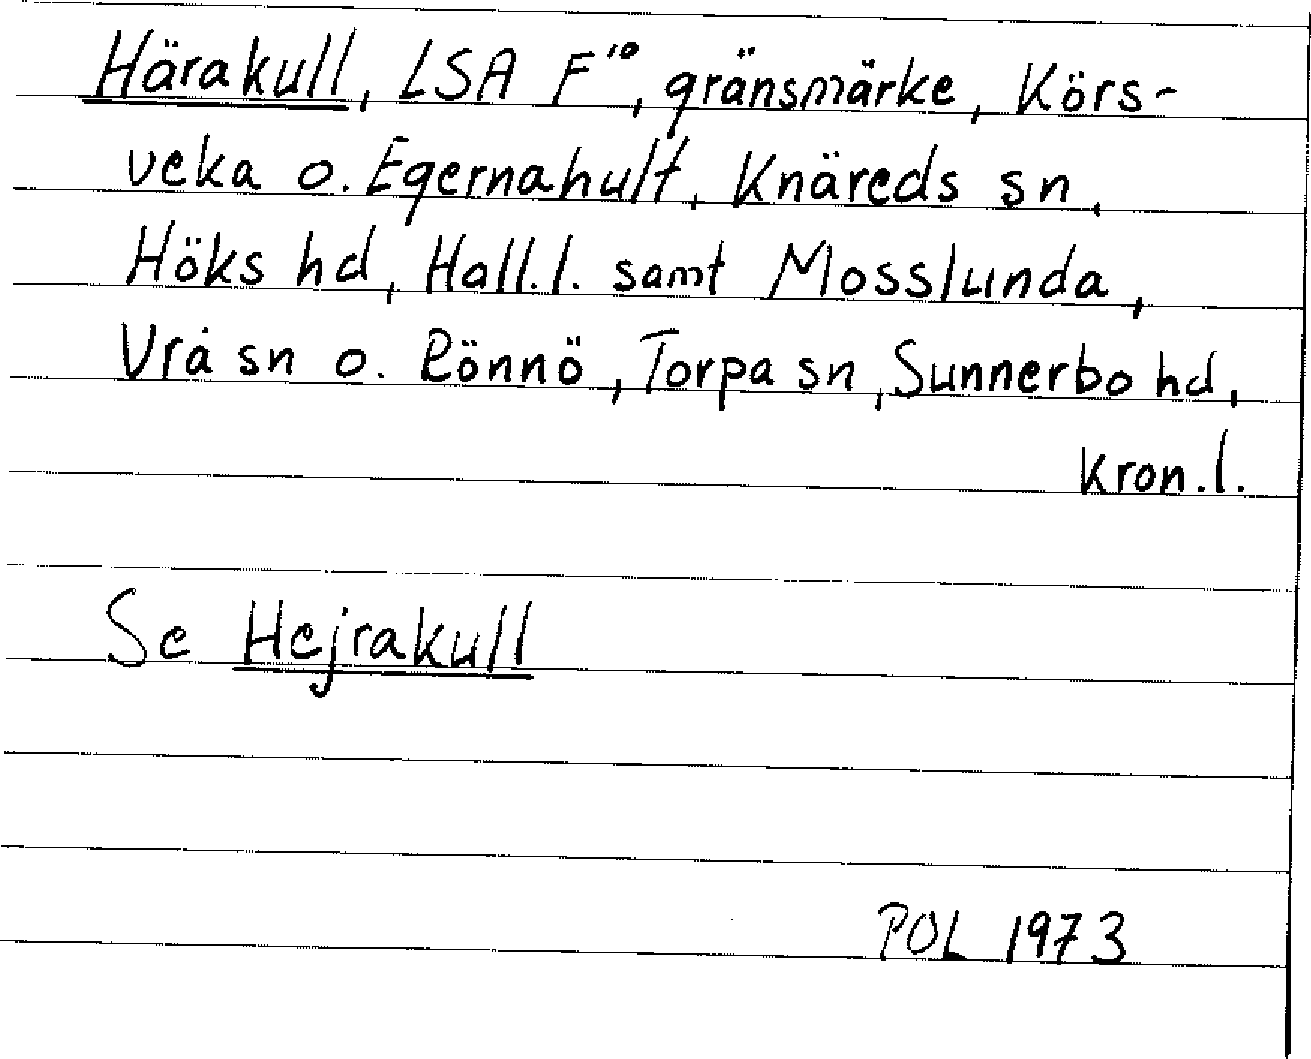 Härakull, LSA F¹⁰, gränsmärke, Körs-
veka o. Egernahult, Knäreds sn,
Höks hd, Hall.l. samt Mosslunda,
Vrå sn o. Rönnö, Torpa sn, Sunnerbo hd,
Kron.l.
Se Hejrakull
POL 1973